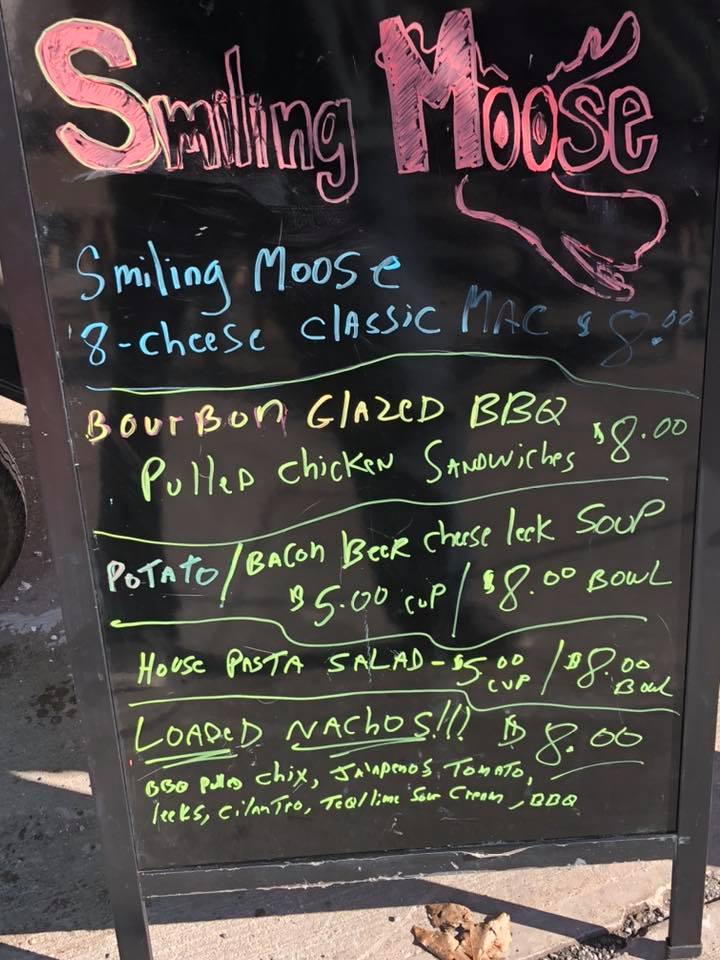 Smiling Moose
Smiling Moose
8-cheese classic MAC $8.00
Bourbon Glazed BBQ
Pulled chicken Sandwiches $8.00
Potato/Bacon Beer cheese leek Soup
$5.00 cup / $8.00 Bowl
House Pasta Salad - $5.00 cup / $8.00 Bowl
Loaded Nachos!!! $8.00
BBQ Pulled Chix, Jalapenos, Tomato,
leeks, Cilantro, Teq/lime Sour Cream, BBQ